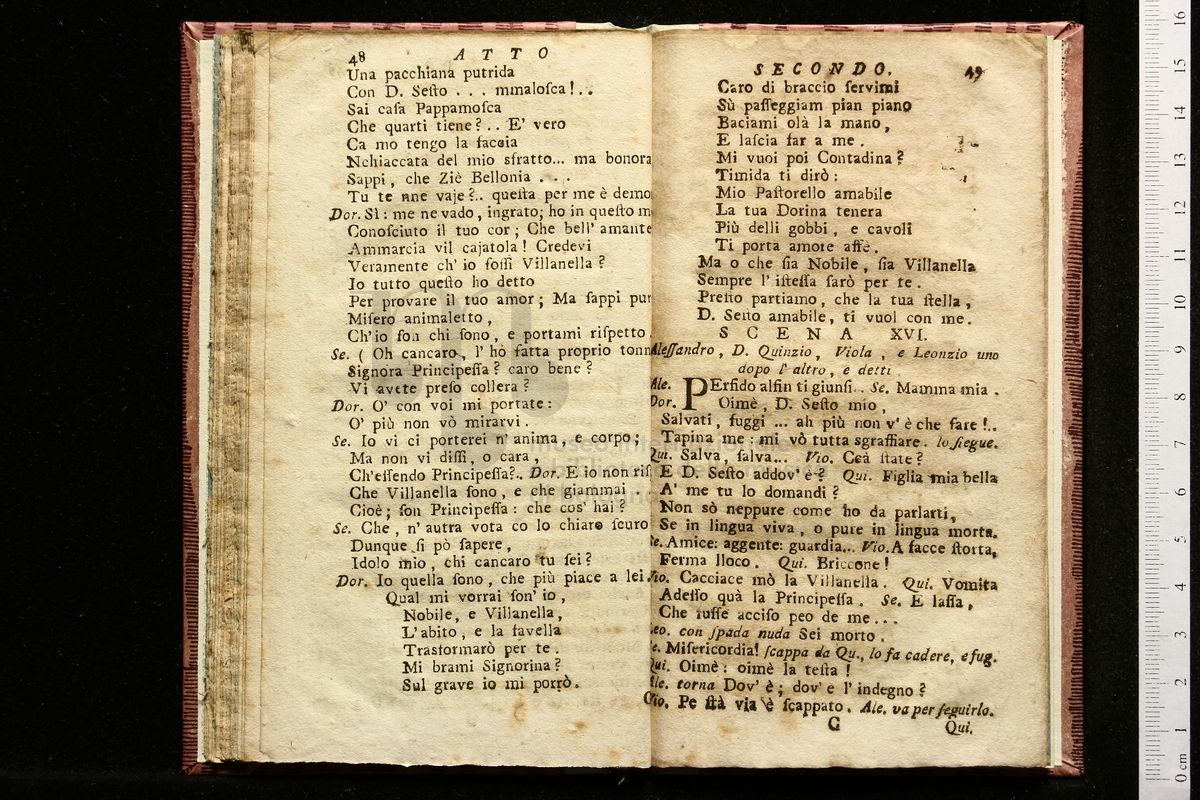 48 ATTO
Una pacchiana putrida
Con D. Seſto . . . mmaloſca!..
Sai caſa Pappamoſca
Che quarti tiene?.. E' vero
Ca mo tengo la faccia
Nchiaccata del mio sfratto... ma bonora
Sappi, che Ziè Bellonia . . .
Tu te nne vaje?.. queſta per me è demo
Dor. Sì: me ne vado, ingrato; ho in queſto m
Conoſciuto il tuo cor; Che bell' amante
Ammarcia vil cajatola! Credevi
Veramente ch' io foſſi Villanella?
Io tutto queſto ho detto
Per provare il tuo amor; Ma ſappi pur
Miſero animaletto,
Ch'io ſon chi ſono, e portami riſpetto.
Se. ( Oh cancaro, l' hò fatta proprio tonn
Signora Principeſſa? caro bene?
Vi avete preſo collera?
Dor. O' con voi mi portate:
O' più non vò mirarvi.
Se. Io vi ci porterei n' anima, e corpo;
Ma non vi diſſi, o cara,
Ch'eſſendo Principeſſa?.. Dor. E io non riſ
Che Villanella ſono, e che giammai . .
Cioè; ſon Principeſſa: che cos' hai?
Se. Che, n' autra vota co lo chiaro ſcuro
Dunque ſi pò ſapere,
Idolo mio, chi cancaro tu ſei?
Dor. Io quella ſono, che più piace a lei.
Qual mi vorrai ſon' io,
Nobile, e Villanella,
L'abito, e la favella
Trasformarò per te.
Mi brami Signorina?
Sul grave io mi porrò.
SECONDO. 49
Caro di braccio ſervimi
Sù paſſeggiam pian piano
Baciami olà la mano,
E laſcia far a me.
Mi vuoi poi Contadina?
Timida ti dirò:
Mio Paſtorello amabile
La tua Dorina tenera
Più delli gobbi, e cavoli
Ti porta amore affè.
Ma o che ſia Nobile, ſia Villanella
Sempre l' iſteſſa ſarò per te.
Preſto partiamo, che la tua ſtella,
D. Seſto amabile, ti vuol con me.
SCENA XVI.
Aleſſandro, D. Quinzio, Viola, e Leonzio uno
dopo l' altro, e detti.
Ale. PErfido alfin ti giunſi.. Se. Mamma mia.
Dor. Oimè, D. Seſto mio,
Salvati, fuggi ... ah più non v' è che fare!..
Tapina me: mi vò tutta sgraffiare. lo ſiegue.
Qui. Salva, ſalva... Vio. Ccà ſtate?
E D. Seſto addov' è? Qui. Figlia mia bella
A' me tu lo domandi?
Non sò neppure come ho da parlarti,
Se in lingua viva, o pure in lingua morta.
Se. Amice: aggente: guardia... Vio. A facce ſtorta,
Ferma lloco. Qui. Briccone!
Vio. Cacciace mò la Villanella. Qui. Vomita
Adeſſo quà la Principeſſa. Se. E laſſa,
Che fuſſe acciſo peo de me...
Leo. con ſpada nuda Sei morto.
Se. Miſericordia! ſcappa da Qu., lo fa cadere, e fug.
Qui. Oimè: oimè la teſta!
Ale. torna Dov' è; dov' e l' indegno?
Vio. Pe ſtà via è ſcappato. Ale. va per ſeguirlo.
C Qui.